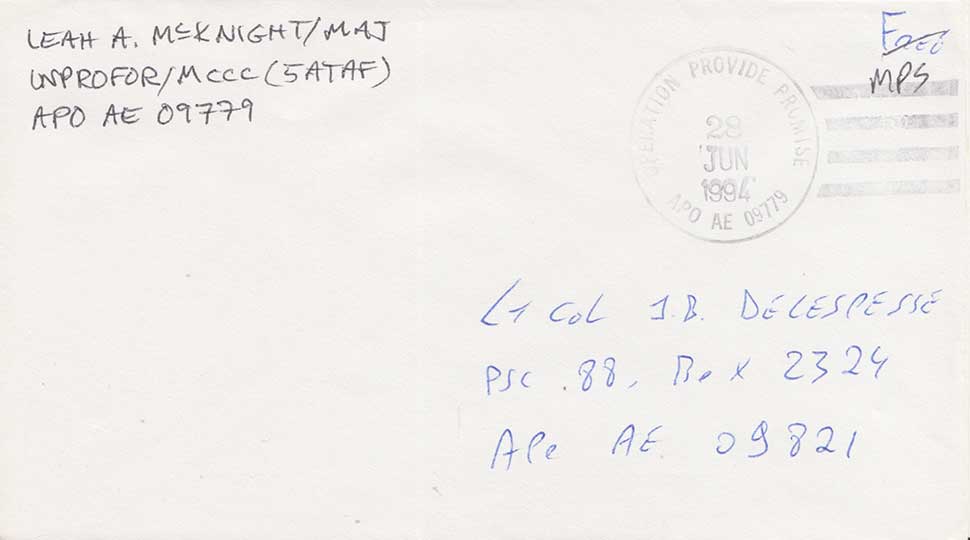 LEAH A. McKNIGHT/MAJ
UNPROFOR/MCCC (5ATAF)
APO AE 09779
Free
MPS
OPERATION PROVIDE PROMISE
29
JUN
1994
APO AE 09779
Lt COL J.B. DELESPESSE
PSC 88, Box 2324
APO AE 09821